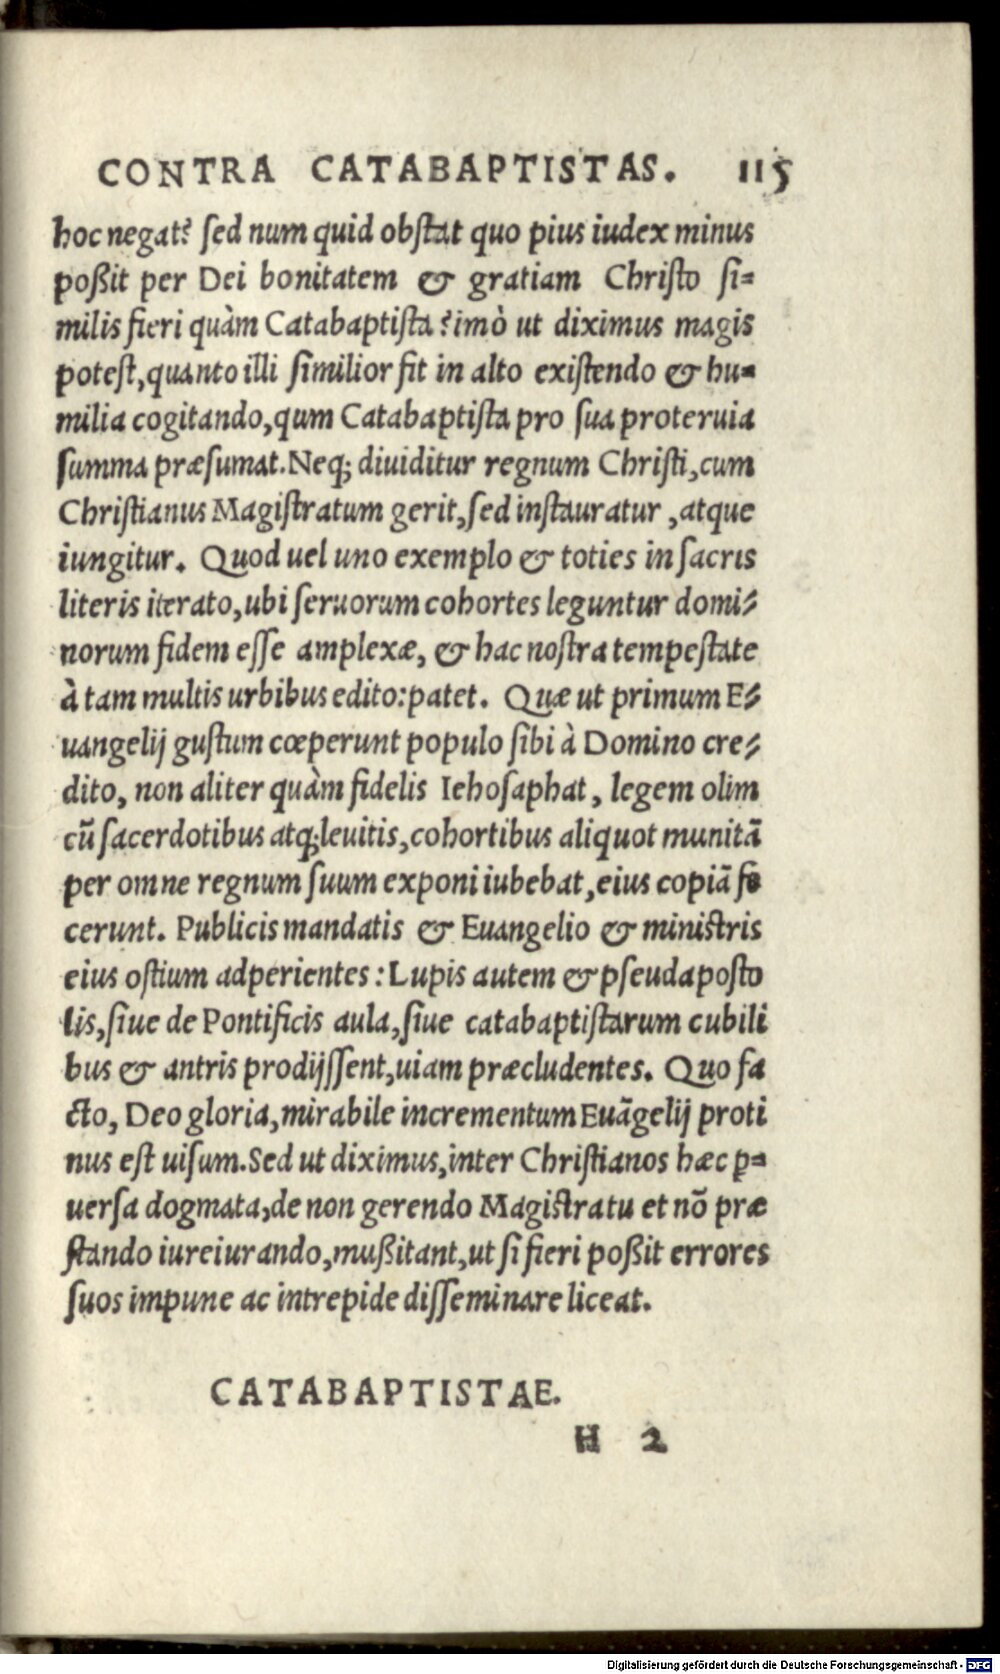 CONTRA CATABAPTISTAS. 115
hoc negat? sed num quid obstat quo pius iudex minus
poßit per Dei bonitatem & gratiam Christo si=
milis fieri quàm Catabaptista? imò ut diximus magis
potest, quanto illi similior fit in alto existendo & hu=
milia cogitando, qum Catabaptista pro sua proteruia
summa præsumat. Neq; diuiditur regnum Christi, cum
Christianus Magistratum gerit, sed instauratur, atque
iungitur. Quod uel uno exemplo & toties in sacris
literis iterato, ubi seruorum cohortes leguntur domi=
norum fidem esse amplexæ, & hac nostra tempestate
à tam multis urbibus edito: patet. Quæ ut primum E=
uangelij gustum cœperunt populo sibi à Domino cre=
dito, non aliter quàm fidelis Iehosaphat, legem olim
cũ sacerdotibus atq; leuitis, cohortibus aliquot munitã
per omne regnum suum exponi iubebat, eius copiã fe
cerunt. Publicis mandatis & Euangelio & ministris
eius ostium adperientes: Lupis autem & pseudaposto
lis, siue de Pontificis aula, siue catabaptistarum cubili
bus & antris prodijssent, uiam præcludentes. Quo fa
cto, Deo gloria, mirabile incrementum Euãgelij proti
nus est uisum. Sed ut diximus, inter Christianos hæc ꝑ=
uersa dogmata, de non gerendo Magistratu et nõ præ
stando iureiurando, mußitant, ut si fieri poßit errores
suos impune ac intrepide disseminare liceat.
CATABAPTISTAE.
H 2
Digitalisierung gefördert durch die Deutsche Forschungsgemeinschaft - DFG